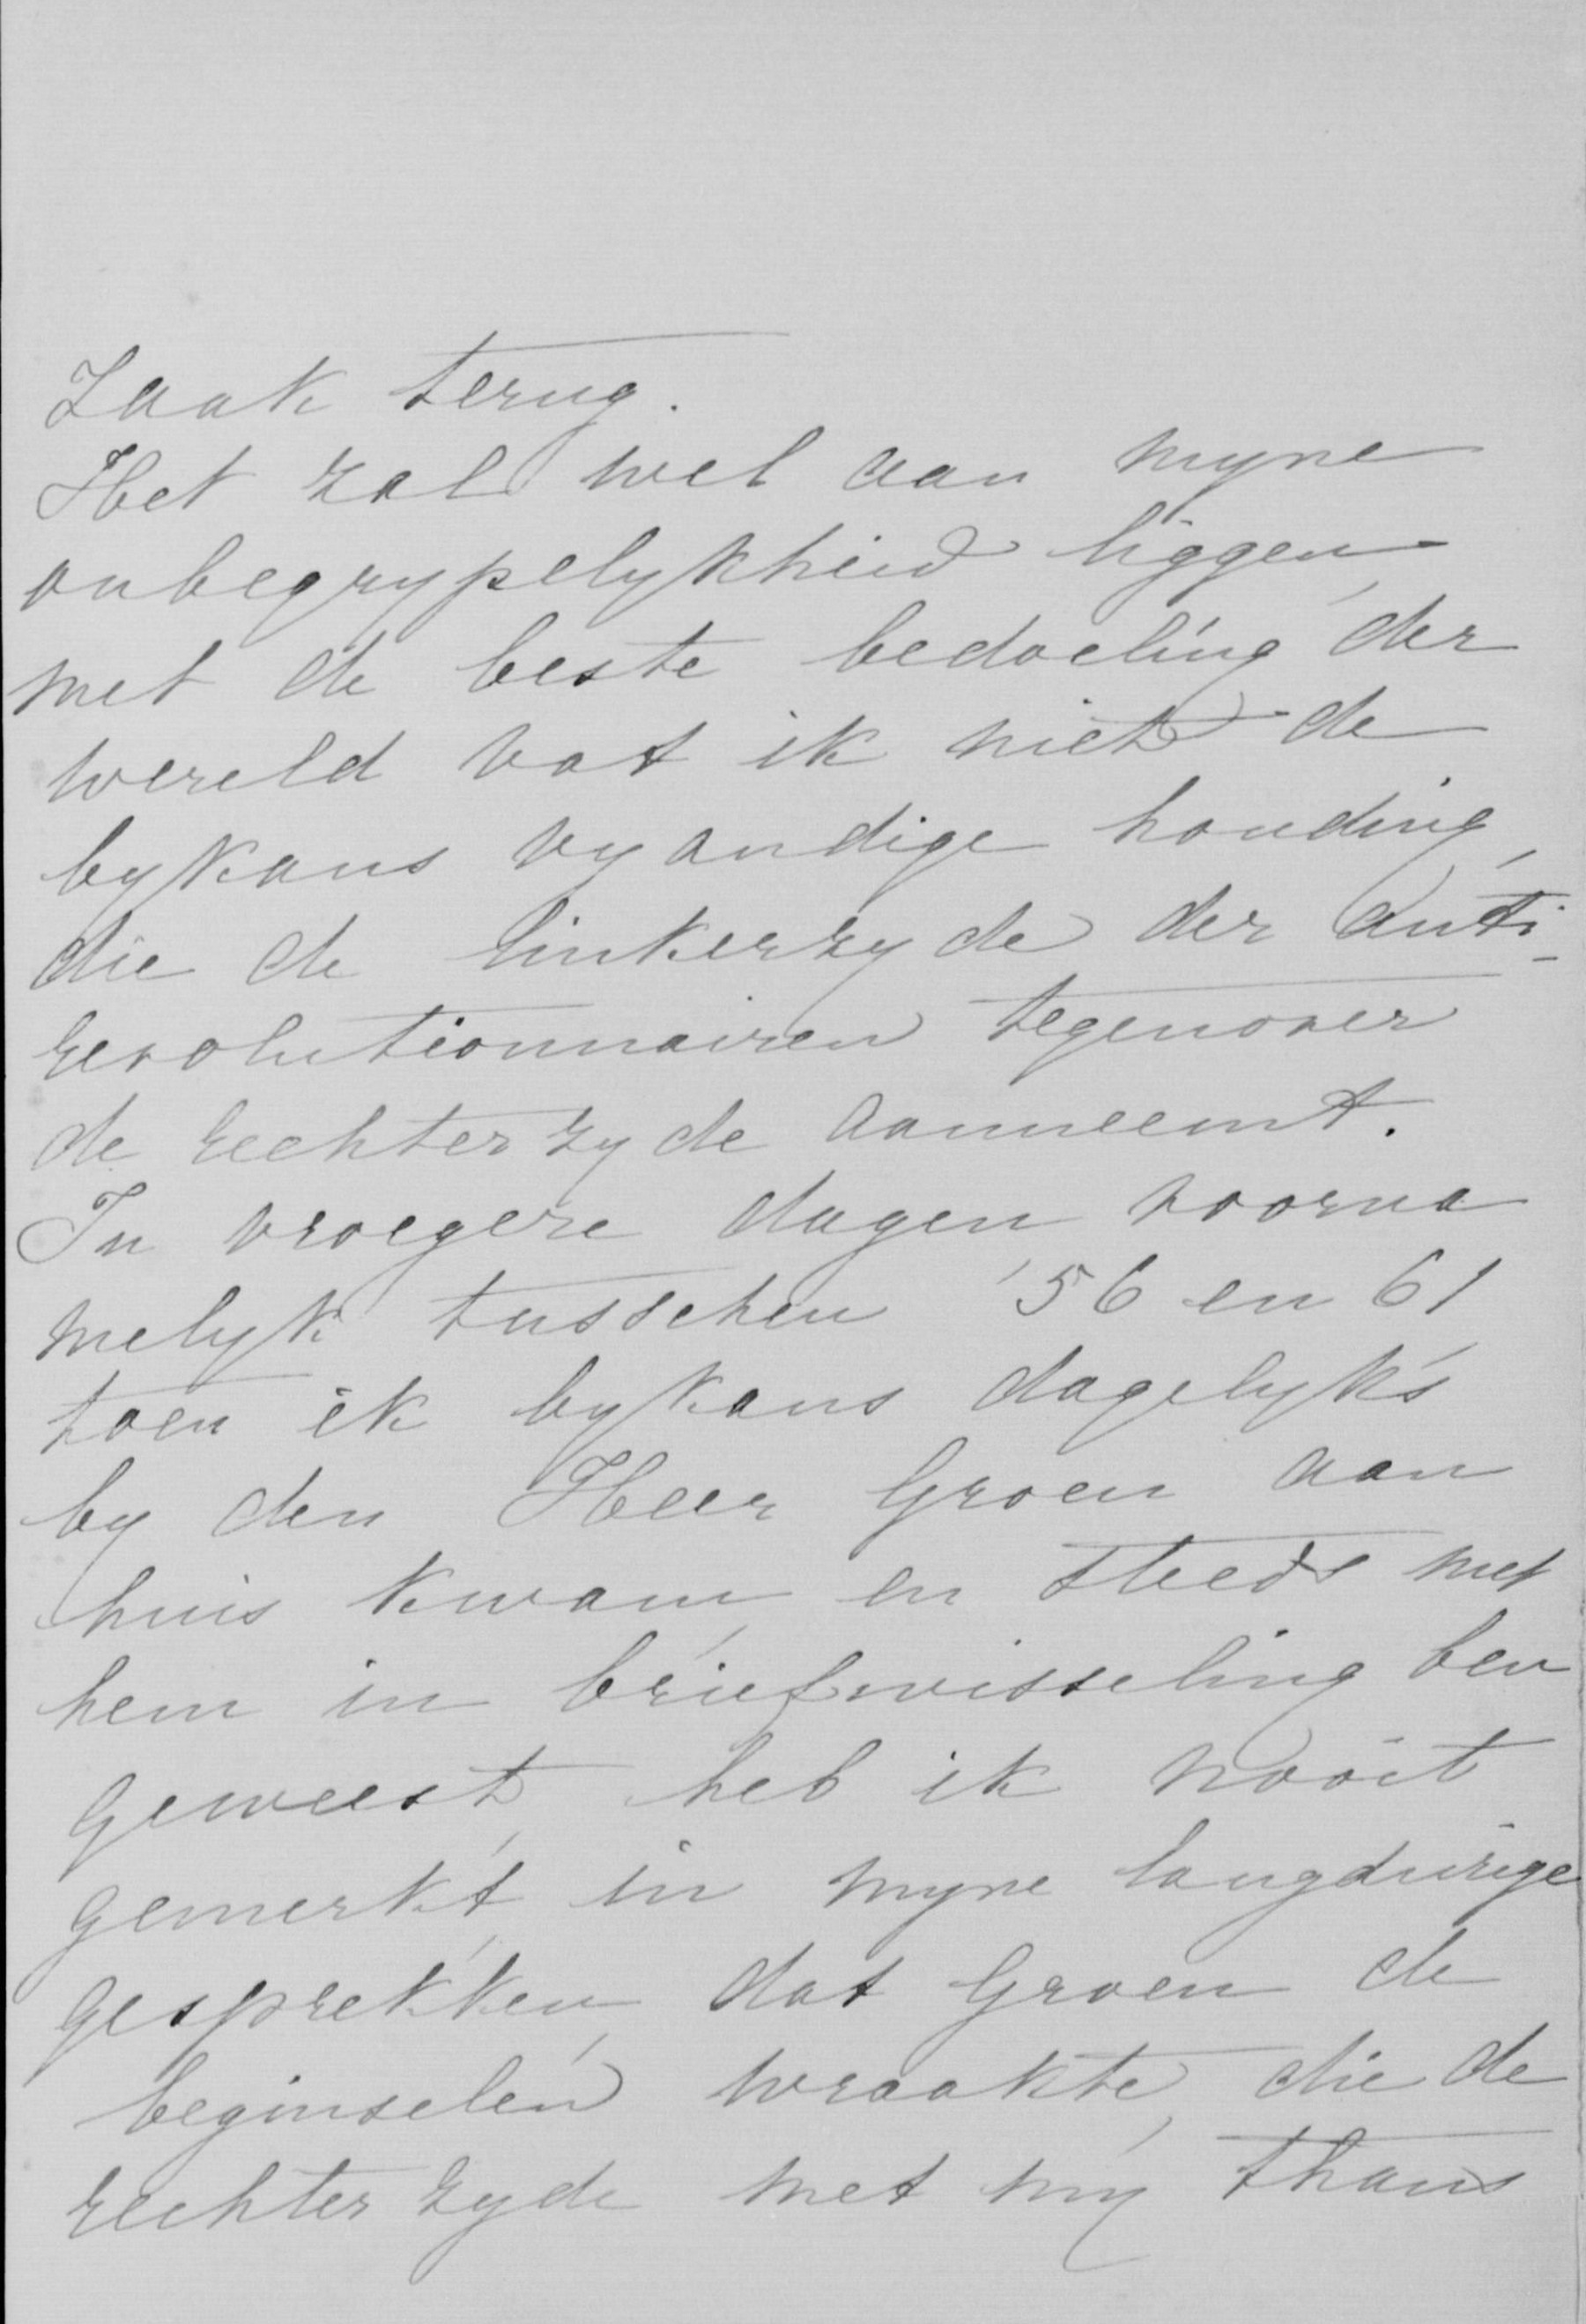 Zaak terug.
Het zal wel aan myne
onbegrypelykheid liggen,
met de beste bedoeling der
wereld vat ik niet de
bykans vyandige houding,
die de linkerzyde der anti-
revolutionnairen tegenover
de rechterzyde aanneemt.
In vroegere dagen voorna
melyk tusschen '56 en 61
toen ik bykans dagelyks
by den Heer Groen aan
huis kwam, en steeds met
hem in briefwisseling ben
geweest, heb ik nooit
gemerkt, in myne langdurige
gesprekken, dat Groen de
beginselen wraakte, die de
rechterzyde met my thans